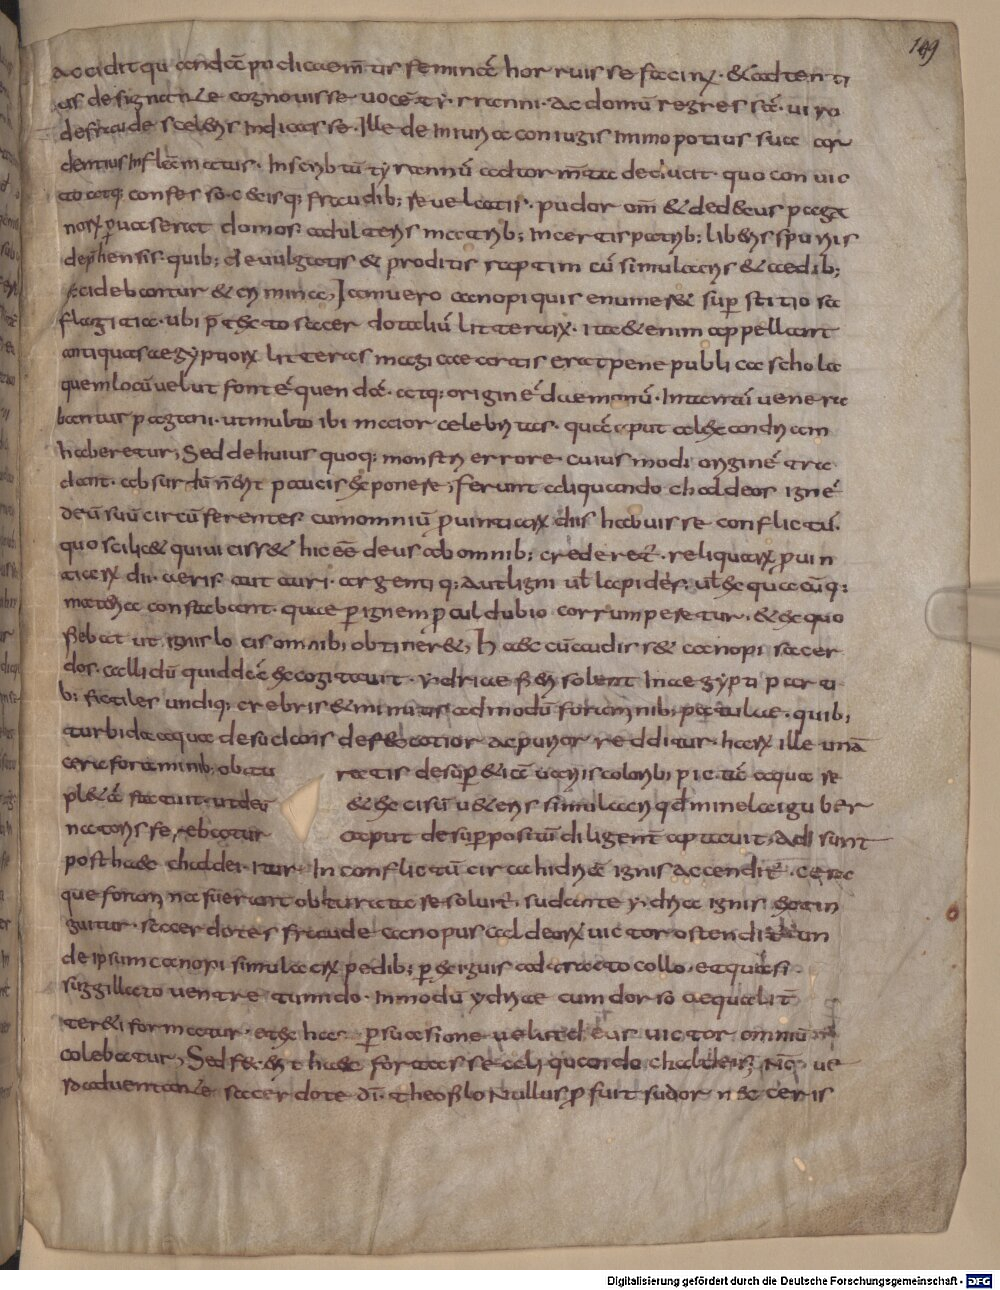 149
accidit quandā pudicae m̄tis feminā horruisse facin᷒ · & ad tenti
as designante cognouisse uocē tyranni · ac domū regressā · uiro
de fraude sceleris indicasse · Ille de iniuria coniugis immo potius sua ar
dentius inflāmatus · Inscribtū tyrannū ad torm̄ta deducit · quo conuic
to atq; confesso · c&erisq; fraudib; reuelatis · pudor om̄ & dedecus paga
norū puaserat domos adulteris matrib; incertis patrib; liberis spuriis
dephensis quib; deuulgatis & proditis raptim cū simulacris & aedib;
cidebantur & crimina, Iam uero canopi quis enumer& sup̄stitiosa
flagitia · ubi p̄t&to sacerdotaliū litterarū · ita & enim appellant
antiquas aegyptiorū litteras magicae artis erat pene publica schola
quem locū uelut fontē quendā · atq; originē daemonū · In tantū uenera
bantur pagani · ut multo ibi maior celebritas · quā aput alexandriam
haberetur, Sed de huius quoq; monstri errore · cuiusmodi originē tra
dant · absurdū n̄ erit paucis exponere, Ferunt aliquando chaldeos ignē
deū suū circūferentes cum omniū puintiarū diis habuisse conflictū ·
quo scilic& qui uiciss& hic eē deus ab omnib; crederet̄ · reliquarū puin
tiarū dii aeris aut auri · argentiq; aut ligni ul̄ lapides · ul̄ ex quacūq;
materia constabant · quae p ignem pcul dubio corrumperetur · & ex quo
fiebat ut ignis locis omnib; obtiner&, haec cū audiss& canopi sacer
dos · callidū quiddā excogitauit · ydriae fieri solent In aegypti parti
b; fictiles undiq; crebris & minutis admodū foraminib; patulae · quib;
turbida aqua desudans defecatior ac purior redditur · harū ille unā
cera foraminib; obtu ratis desup̄ & iā uariis colorib; pictā aqua re
pl&ā statuit · ut deū & excisū u&eris simulacri qd̄ minelai guber
natoris ferebatur caput desup̄ positū diligent̄ aptauit, Adsunt
post haec chaldei · Itur In conflictū circa hidriā ignis accendit̄ · cera
que foramina fuerant obturata resoluit̄ · sudante ydria ignis extin
guitur · sacerdotes fraude canopus caldeorū uictor ostendit̄ · un
de ipsum canopi simulacrū pedib; p exiguis adtracto collo · et quasi
suggillato uentre tumido · Inmodū ydriae cum dorso aequalit̄
ter&i formatur · et ex hac psuasione uelut deus uictor omniū
colebatur, Sed fu·erit haec fortasse aliquando chaldeis, Nc̄ ue
ro aduentante sacerdote dī · theofilo Nullus pfuit sudor nec ceris
Digitalisierung gefördert durch die Deutsche Forschungsgemeinschaft - DFG